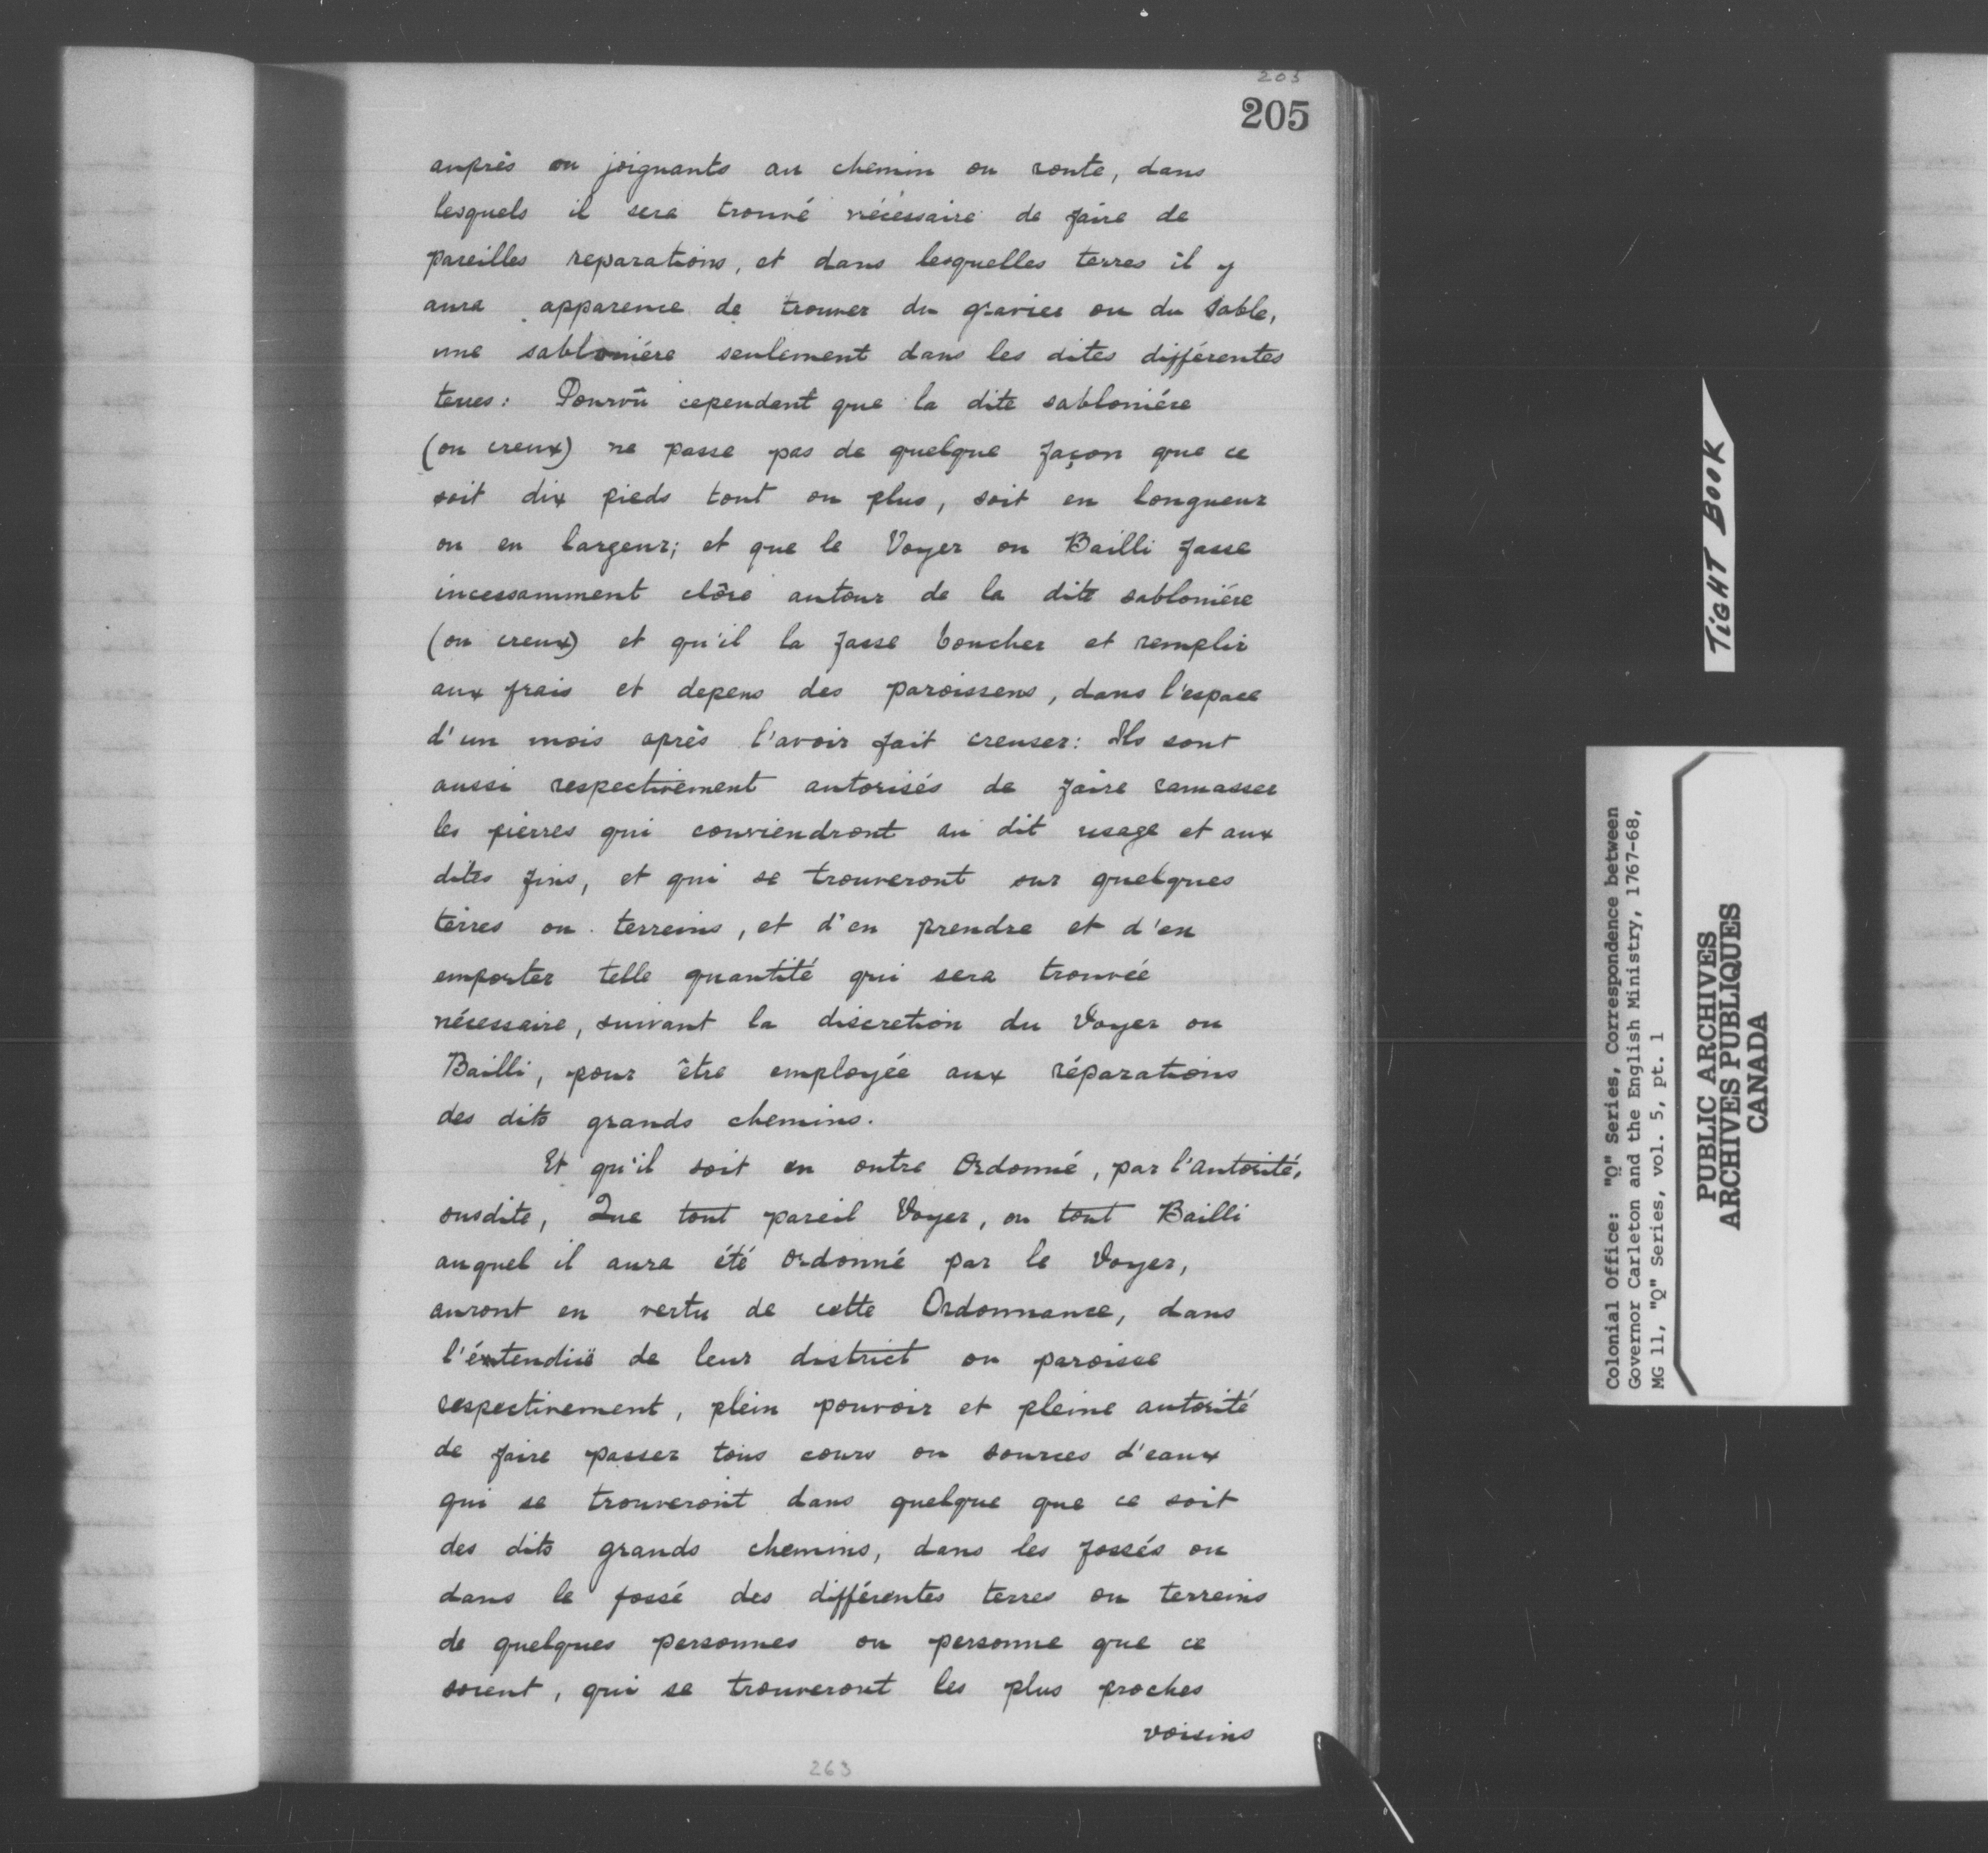 203
205
auprès ou joignants au chemin ou route, dans
lesquels il sera trouvé nécessaire de faire de
pareilles reparations, et dans lesquelles terres il y
aura apparence de trouver du gravier ou du sable,
une sabloniére seulement dans les dites différentes
terres: Pourvû cependant que la dite sabloniére
(ou creux) ne passe pas de quelque façon que ce
soit dix pieds tout au plus, soit en longueur
ou en largeur; et que le Voyer ou Bailli fasse
incessamment clôre autour de la dite sabloniére
(ou creux) et qu'il la fasse boucher et remplir
aux frais et depens des paroissens, dans l'espace
d'un mois après l'avoir fait creuser: Ils sont
aussi respectivement autorisés de faire ramasser
les pierres qui conviendront au dit usage et aux
dites fins, et qui se trouveront sur quelques
terres ou terreins, et d'en prendre et d'en
emporter telle quantité qui sera trouvée
nécessaire, suivant la discretion du Voyer ou
Bailli, pour être employée aux réparations
des dits grands chemins.
Et qu'il soit en outre Ordonné, par l'autorité,
susdite, Que tout pareil Voyer, ou tout Bailli
auquel il aura été ordonné par le Voyer,
auront en vertu de cette Ordonnance, dans
l'éxtendüe de leur district ou paroisse
respectivement, plein pouvoir et pleine autorité
de faire passer tous cours ou sources d'eaux
qui se trouveront dans quelque que ce soit
des dits grands chemins, dans les fossés ou
dans le fossé des différentes terres ou terreins
de quelques personnes ou personne que ce
soient, qui se trouveront les plus proches
voisins
263
TIGHT BOOK
Colonial Office: "Q" Series, Correspondence between
Governor Carleton and the English Ministry, 1767-68,
MG 11, "Q" Series, vol. 5, pt. 1
PUBLIC ARCHIVES
ARCHIVES PUBLIQUES
CANADA